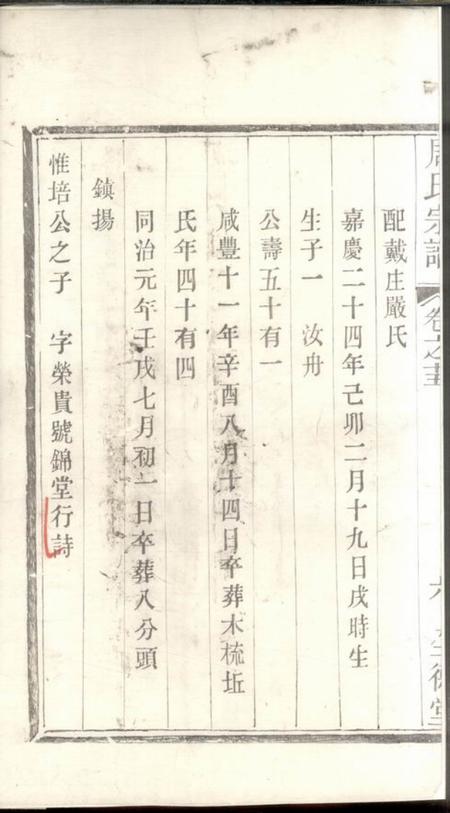 周氏宗譜 卷之
配戴庄嚴氏
嘉慶二十四年己卯二月十九日戌時生
生子一 汝舟
公壽五十有一
咸豐十一年辛酉八月十四日卒葬木梳坵
氏年四十有四
同治元年壬戌七月初一日卒葬八分頭
鎮揚
惟培公之子 字榮貴號錦堂行詩